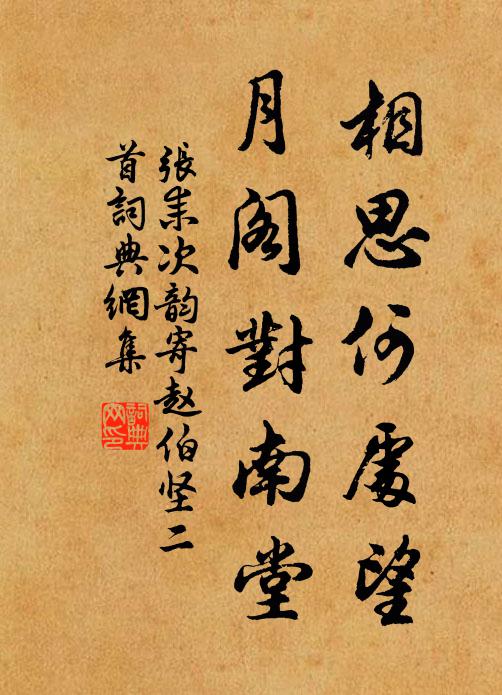 相思何處望
月閣對南堂
張耒次韵寄赵伯坚二
首詞典網集
詞典
网印